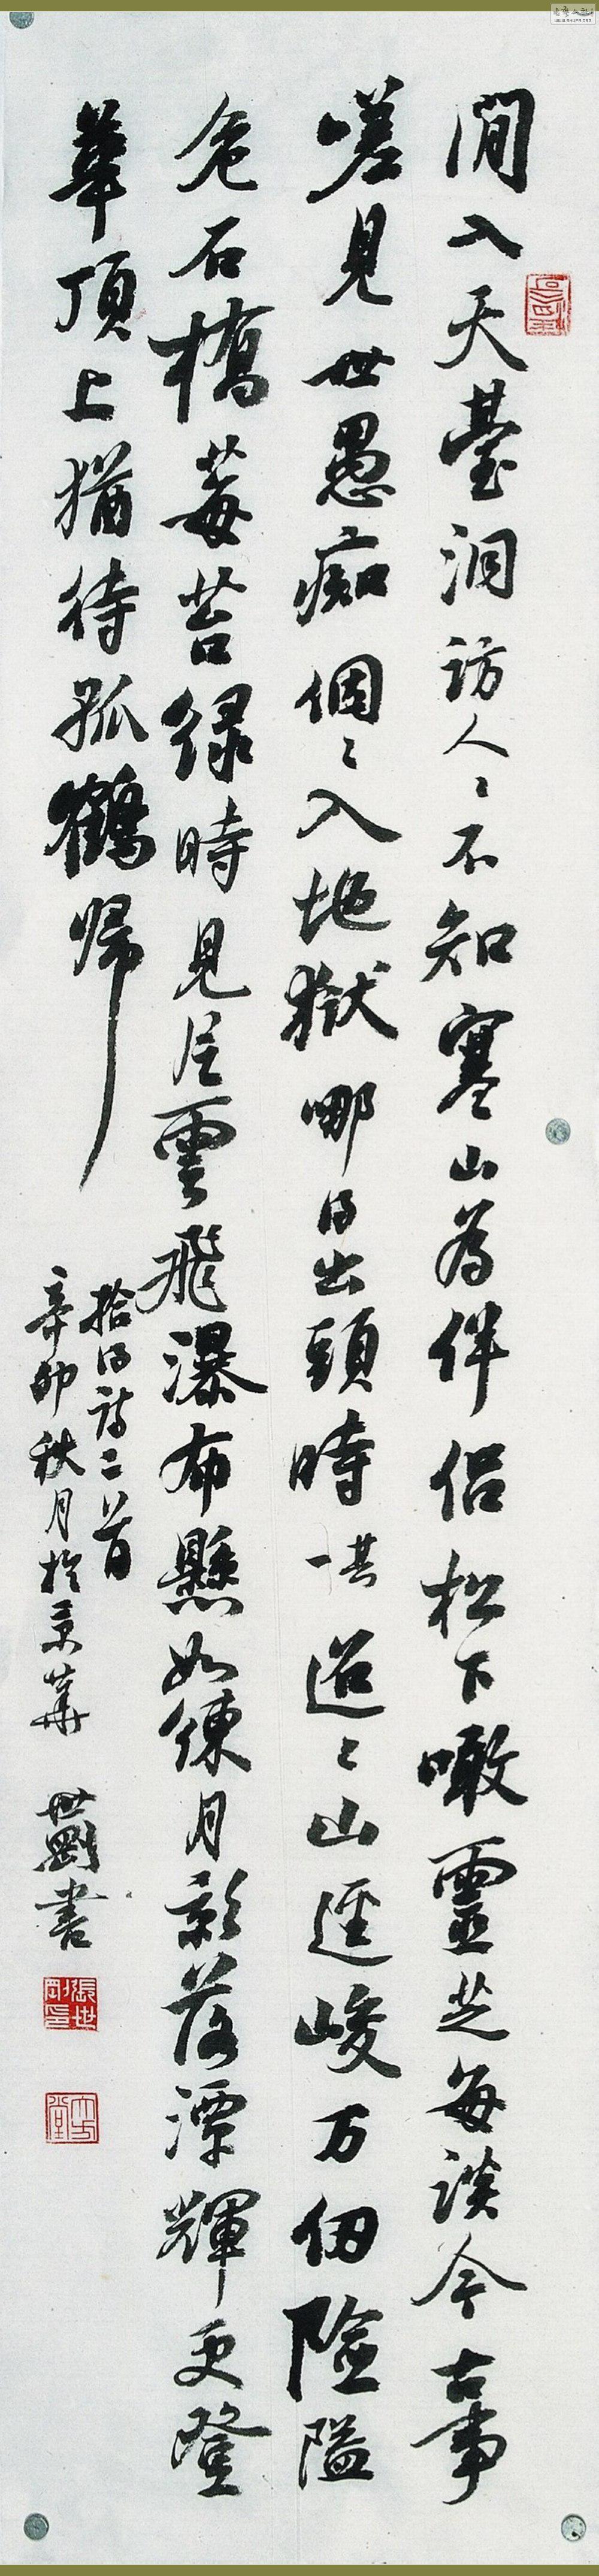 閒入天臺洞訪人々不知寒山爲伴侣松下噉靈芝每談今古事
嗟見世愚痴個々入地獄哪得出頭時一其迢々山逕峻万仞險隘
危石橋莓苔绿時見片雲飛瀑布懸如練月影落潭輝更登
華頂上猶待孤鶴归
拾得詩二首
辛卯秋月於京華 世剛書
張世剛印